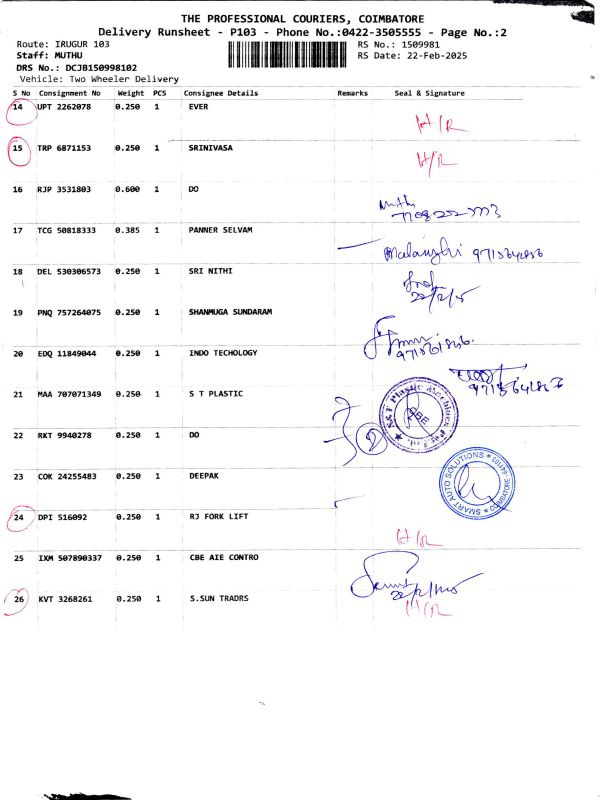 THE PROFESSIONAL COURIERS, COIMBATORE
Delivery Runsheet - P103 - Phone No.:0422-3505555 - Page No.:2
Route: IRUGUR 103 RS No.: 1509981
Staff: MUTHU RS Date: 22-Feb-2025
DRS No.: DCJB150998102
Vehicle: Two Wheeler Delivery
S No Consignment No Weight PCS Consignee Details Remarks Seal & Signature
14 UPT 2262078 0.250 1 EVER
H/R
15 TRP 6871153 0.250 1 SRINIVASA
H/R
16 RJP 3531803 0.600 1 DO
17 TCG 50818333 0.385 1 PANNER SELVAM
18 DEL 530306573 0.250 1 SRI NITHI
19 PNQ 757264075 0.250 1 SHANMUGA SUNDARAM
20 EDQ 11849044 0.250 1 INDO TECHOLOGY
21 MAA 707071349 0.250 1 S T PLASTIC
CBE
22 RKT 9940278 0.250 1 DO
23 COK 24255483 0.250 1 DEEPAK
SMART AUTO SOLUTIONS
COIMBATORE
24 DPI 516092 0.250 1 RJ FORK LIFT
H/R
25 IXM 507890337 0.250 1 CBE AIE CONTRO
26 KVT 3268261 0.250 1 S.SUN TRADRS
H/R